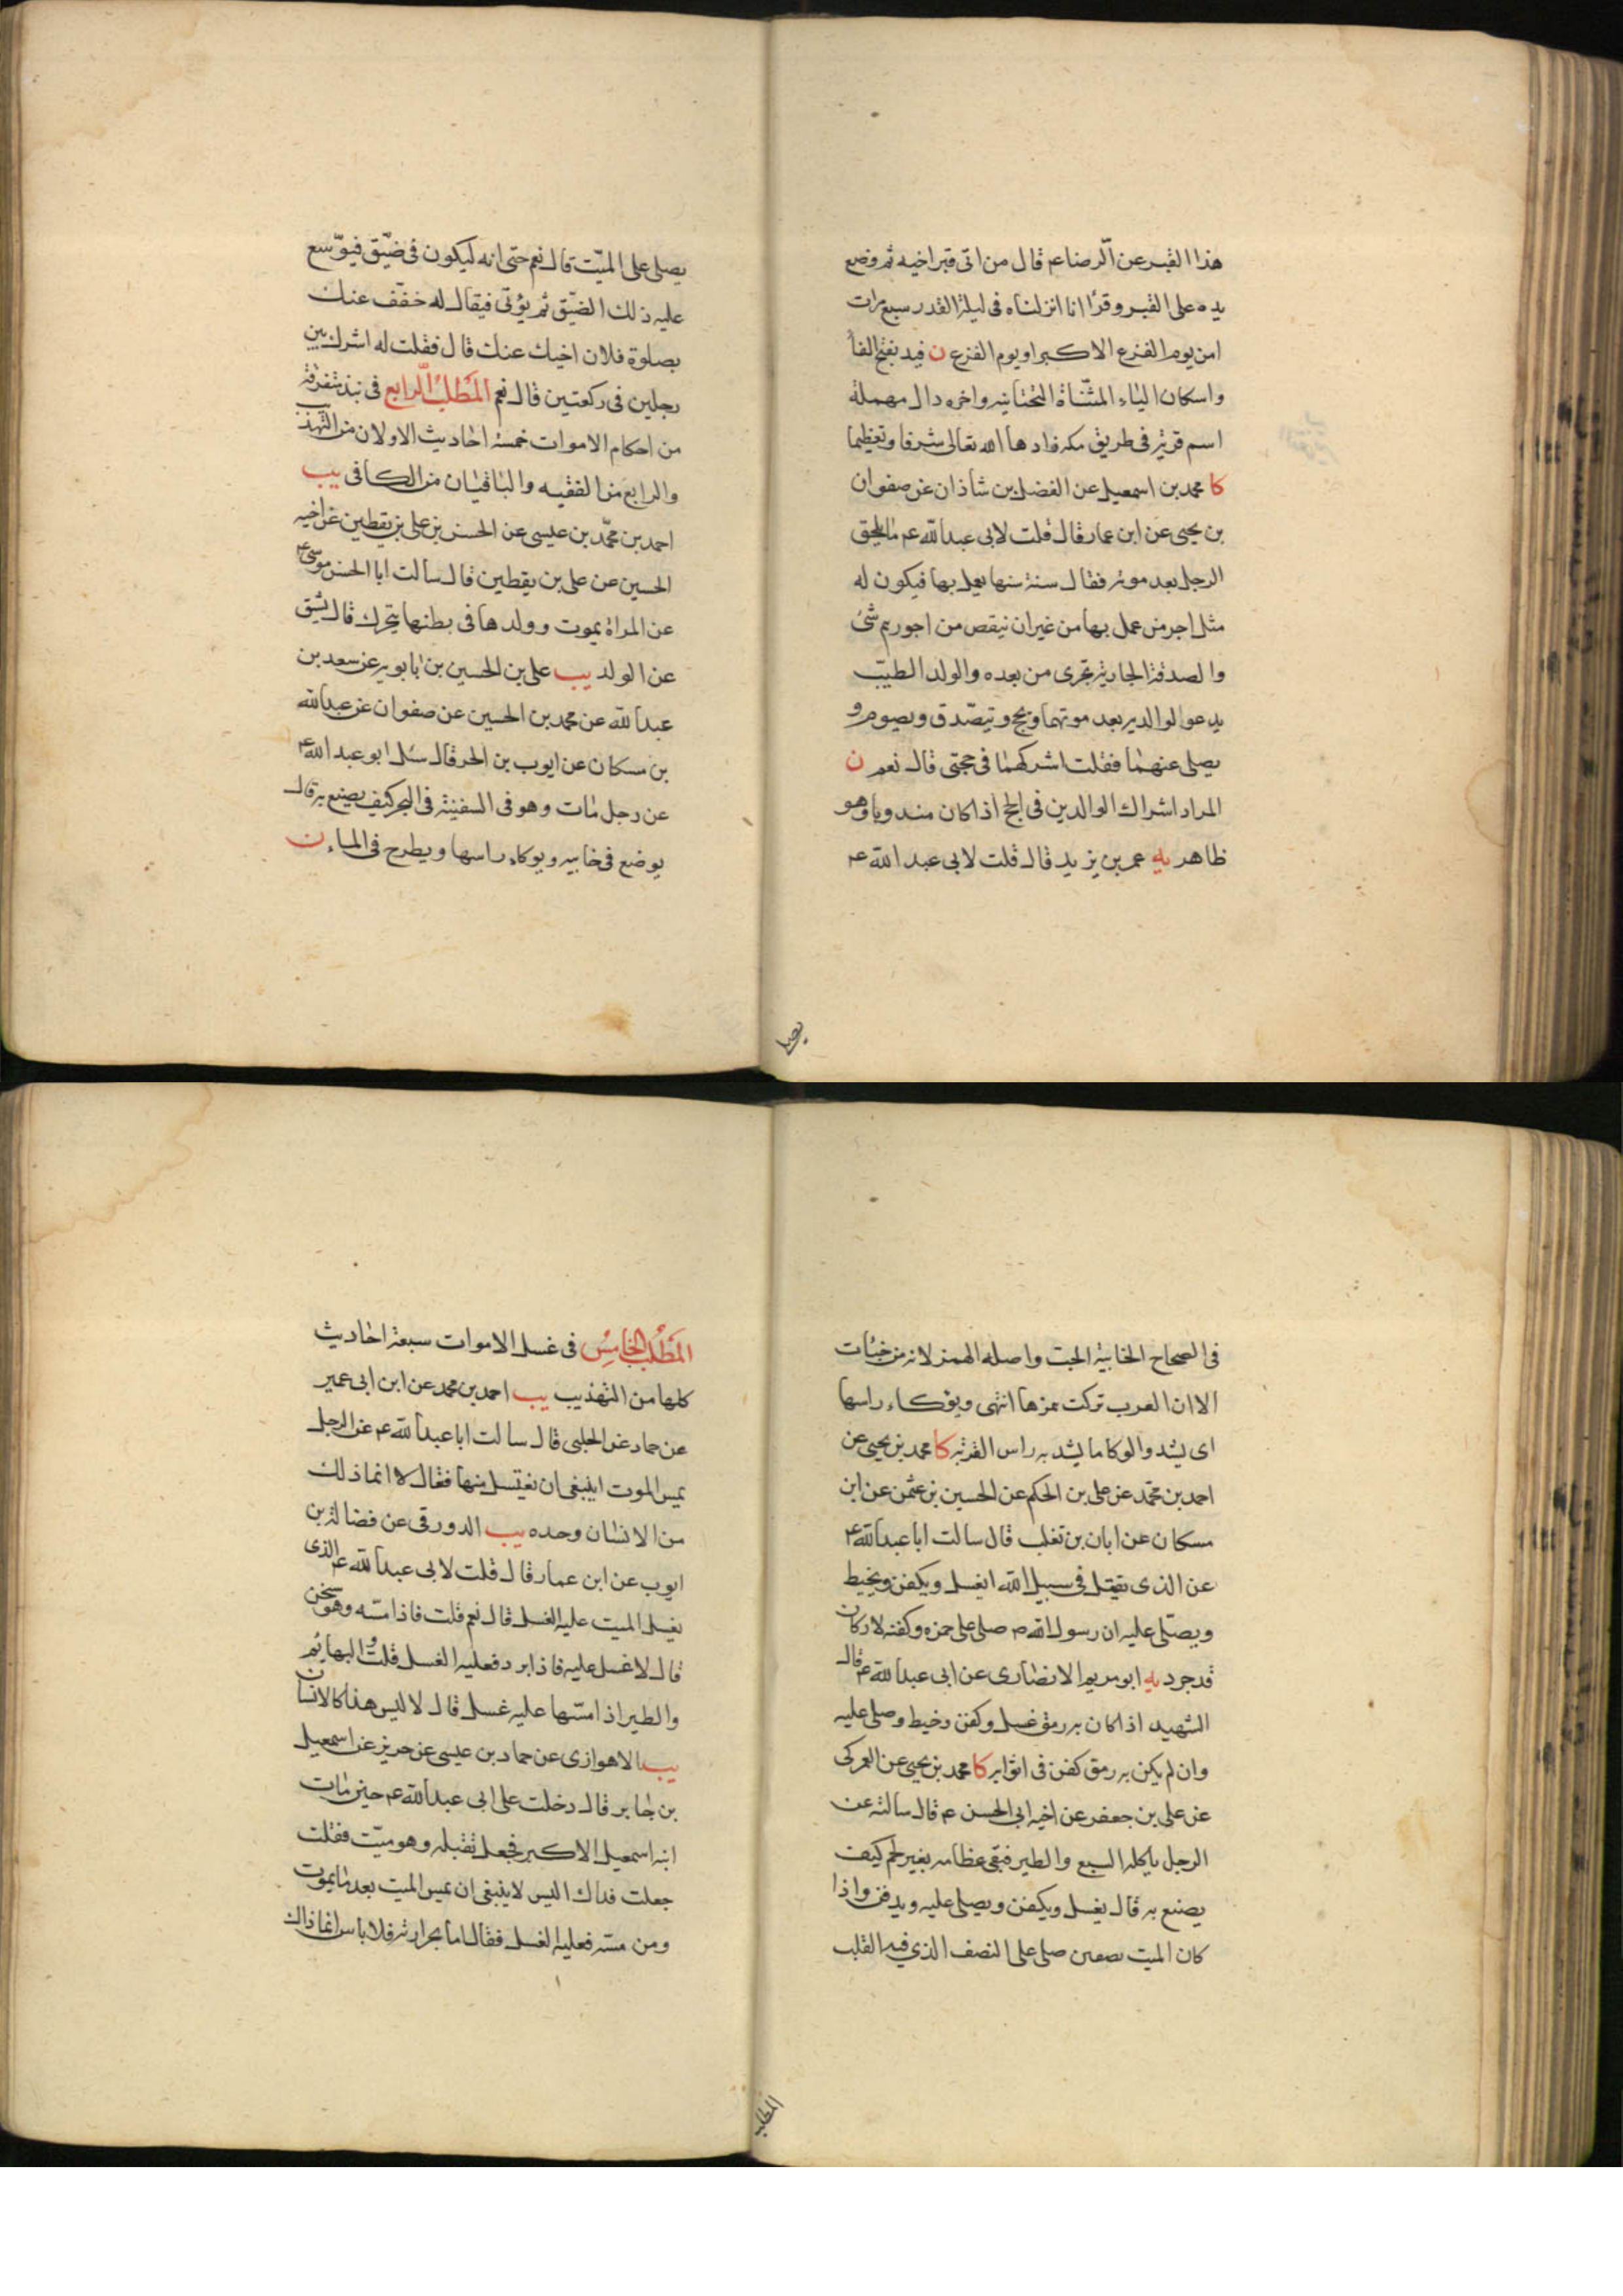 هذا القبر عن الرضا عم قال من اتى قبر اخيه ثم وضع
يده على القبر وقرا انا انزلناه فى ليلة القدر سبع مرات
امن يوم الفزع الاكبر او يوم الفزع ن فيد بفتح الفا
واسكان الياء المثناة التحتانيه واخره دال مهملة
اسم قرية فى طريق مكه زادها الله تعالى شرفا وتعظيما
كا محمد بن اسمعيل عن الفضل بن شاذان عن صفوان
بن يحيى عن ابن عمار قال قلت لابى عبد الله عم ما يلحق
الرجل بعد موته فقال سنة سنها يعمل بها فيكون له
مثل اجر من عمل بها من غير ان ينقص من اجورهم شئ
والصدقة الجارية تجرى من بعده والولد الطيب
يدعو الوالديه بعد موتهما ويحج ويتصدق ويصوم و
يصلى عنهما فقلت اشركهما فى حجتى قال نعم ن
المراد اشراك الوالدين فى الحج اذا كان مندوبا وهو
ظاهر يه عمر بن يزيد قال قلت لابى عبد الله عم
يصلى
يصلى على الميّت قال نعم حتى انه ليكون فى ضيّق فيوّسع
عليه ذلك الضيّق ثم يؤتى فيقال له خفّف عنك
بصلوة فلان اخيك عنك قال فقلت له اشرك بين
رجلين فى ركعتين قال نعم المطلب الرابع فى نبذ متفرقة
من احكام الاموات خمسة احاديث الاولان من التهذيب
والرابع من الفقيه والباقيان من الكافى يب
احمد بن محمّد بن عيسى عن الحسن بن على بن يقطين عن اخيه
الحسين عن على بن يقطين قال سالت ابا الحسن موسى عم
عن المراة يموت وولدها فى بطنها يتحرك قال يشق
عن الولد يب على بن الحسين بن بابويه عن سعد بن
عبد الله عن محمد بن الحسين عن صفوان عن عبد الله
بن مسكان عن ايوب بن الحر قال سئل ابو عبد الله عم
عن رجل مات وهو فى السفينة فى البحر كيف يصنع به قال
يوضع فى خابيه ويوكاء راسها ويطرح فى الماء ن
فى الصحاح الخابية الحب واصله الهمز لانه من خبئات
الا ان العرب تركت همزها انتهى ويوكاء راسها
اى يشد والوكا ما يشد به راس القربة كا محمد بن يحيى عن
احمد بن محمّد عن على بن الحكم عن الحسين بن عثمن عن ابن
مسكان عن ابان بن تغلب قال سالت ابا عبد الله عم
عن الذى يقتل فى سبيل الله ايغسل ويكفن ويخيط
ويصلّى عليه ان رسول الله ص صلى على حمزه وكفنه لانه كان
قد جرد يه ابو مريم الانصارى عن ابى عبد الله عم قال
الشهيد اذا كان به رمق غسل وكفن وخيط وصلى عليه
وان لم يكن به رمق كفن فى اثوابه كا محمد بن يحيى عن العمركى
عن على بن جعفر عن اخيه ابى الحسن عم قال سالته عن
الرجل ياكله السبع والطير فتبقى عظامه بغير لحم كيف
يصنع به قال يغسل ويكفن ويصلى عليه ويدفن واذا
كان الميت نصفين صلى على النصف الذى فيه القلب
المطلب
المطلب الخامس فى غسل الاموات سبعة احاديث
كلها من التهذيب يب احمد بن محمد عن ابن ابى عمير
عن حماد عن الحلبى قال سالت ابا عبد الله عم عن الرجل
يمس الموت اينبغى ان يغتسل منها فقال لا انما ذلك
من الانسان وحده يب الدورقى عن فضالة بن
ايوب عن ابن عمار قال قلت لابى عبد الله عم الذى
يغسل الميت عليه الغسل قال نعم قلت فاذا مسّه وهو سخن
قال لا غسل عليه فاذا برد فعليه الغسل قلت والبهائم
والطير اذا مسّها عليه غسل قال لا ليس هذا كالانسان
يب الاهوازى عن حماد بن عيسى عن حريز عن اسمعيل
بن جابر قال دخلت على ابى عبد الله عم حين مات
ابنه اسمعيل الاكبر فجعل يقبله وهو ميّت فقلت
جعلت فداك اليس لا ينبغى ان يمس الميت بعد ما يموت
ومن مسّه فعليه الغسل فقال اما بحرارته فلا باس انما ذاك